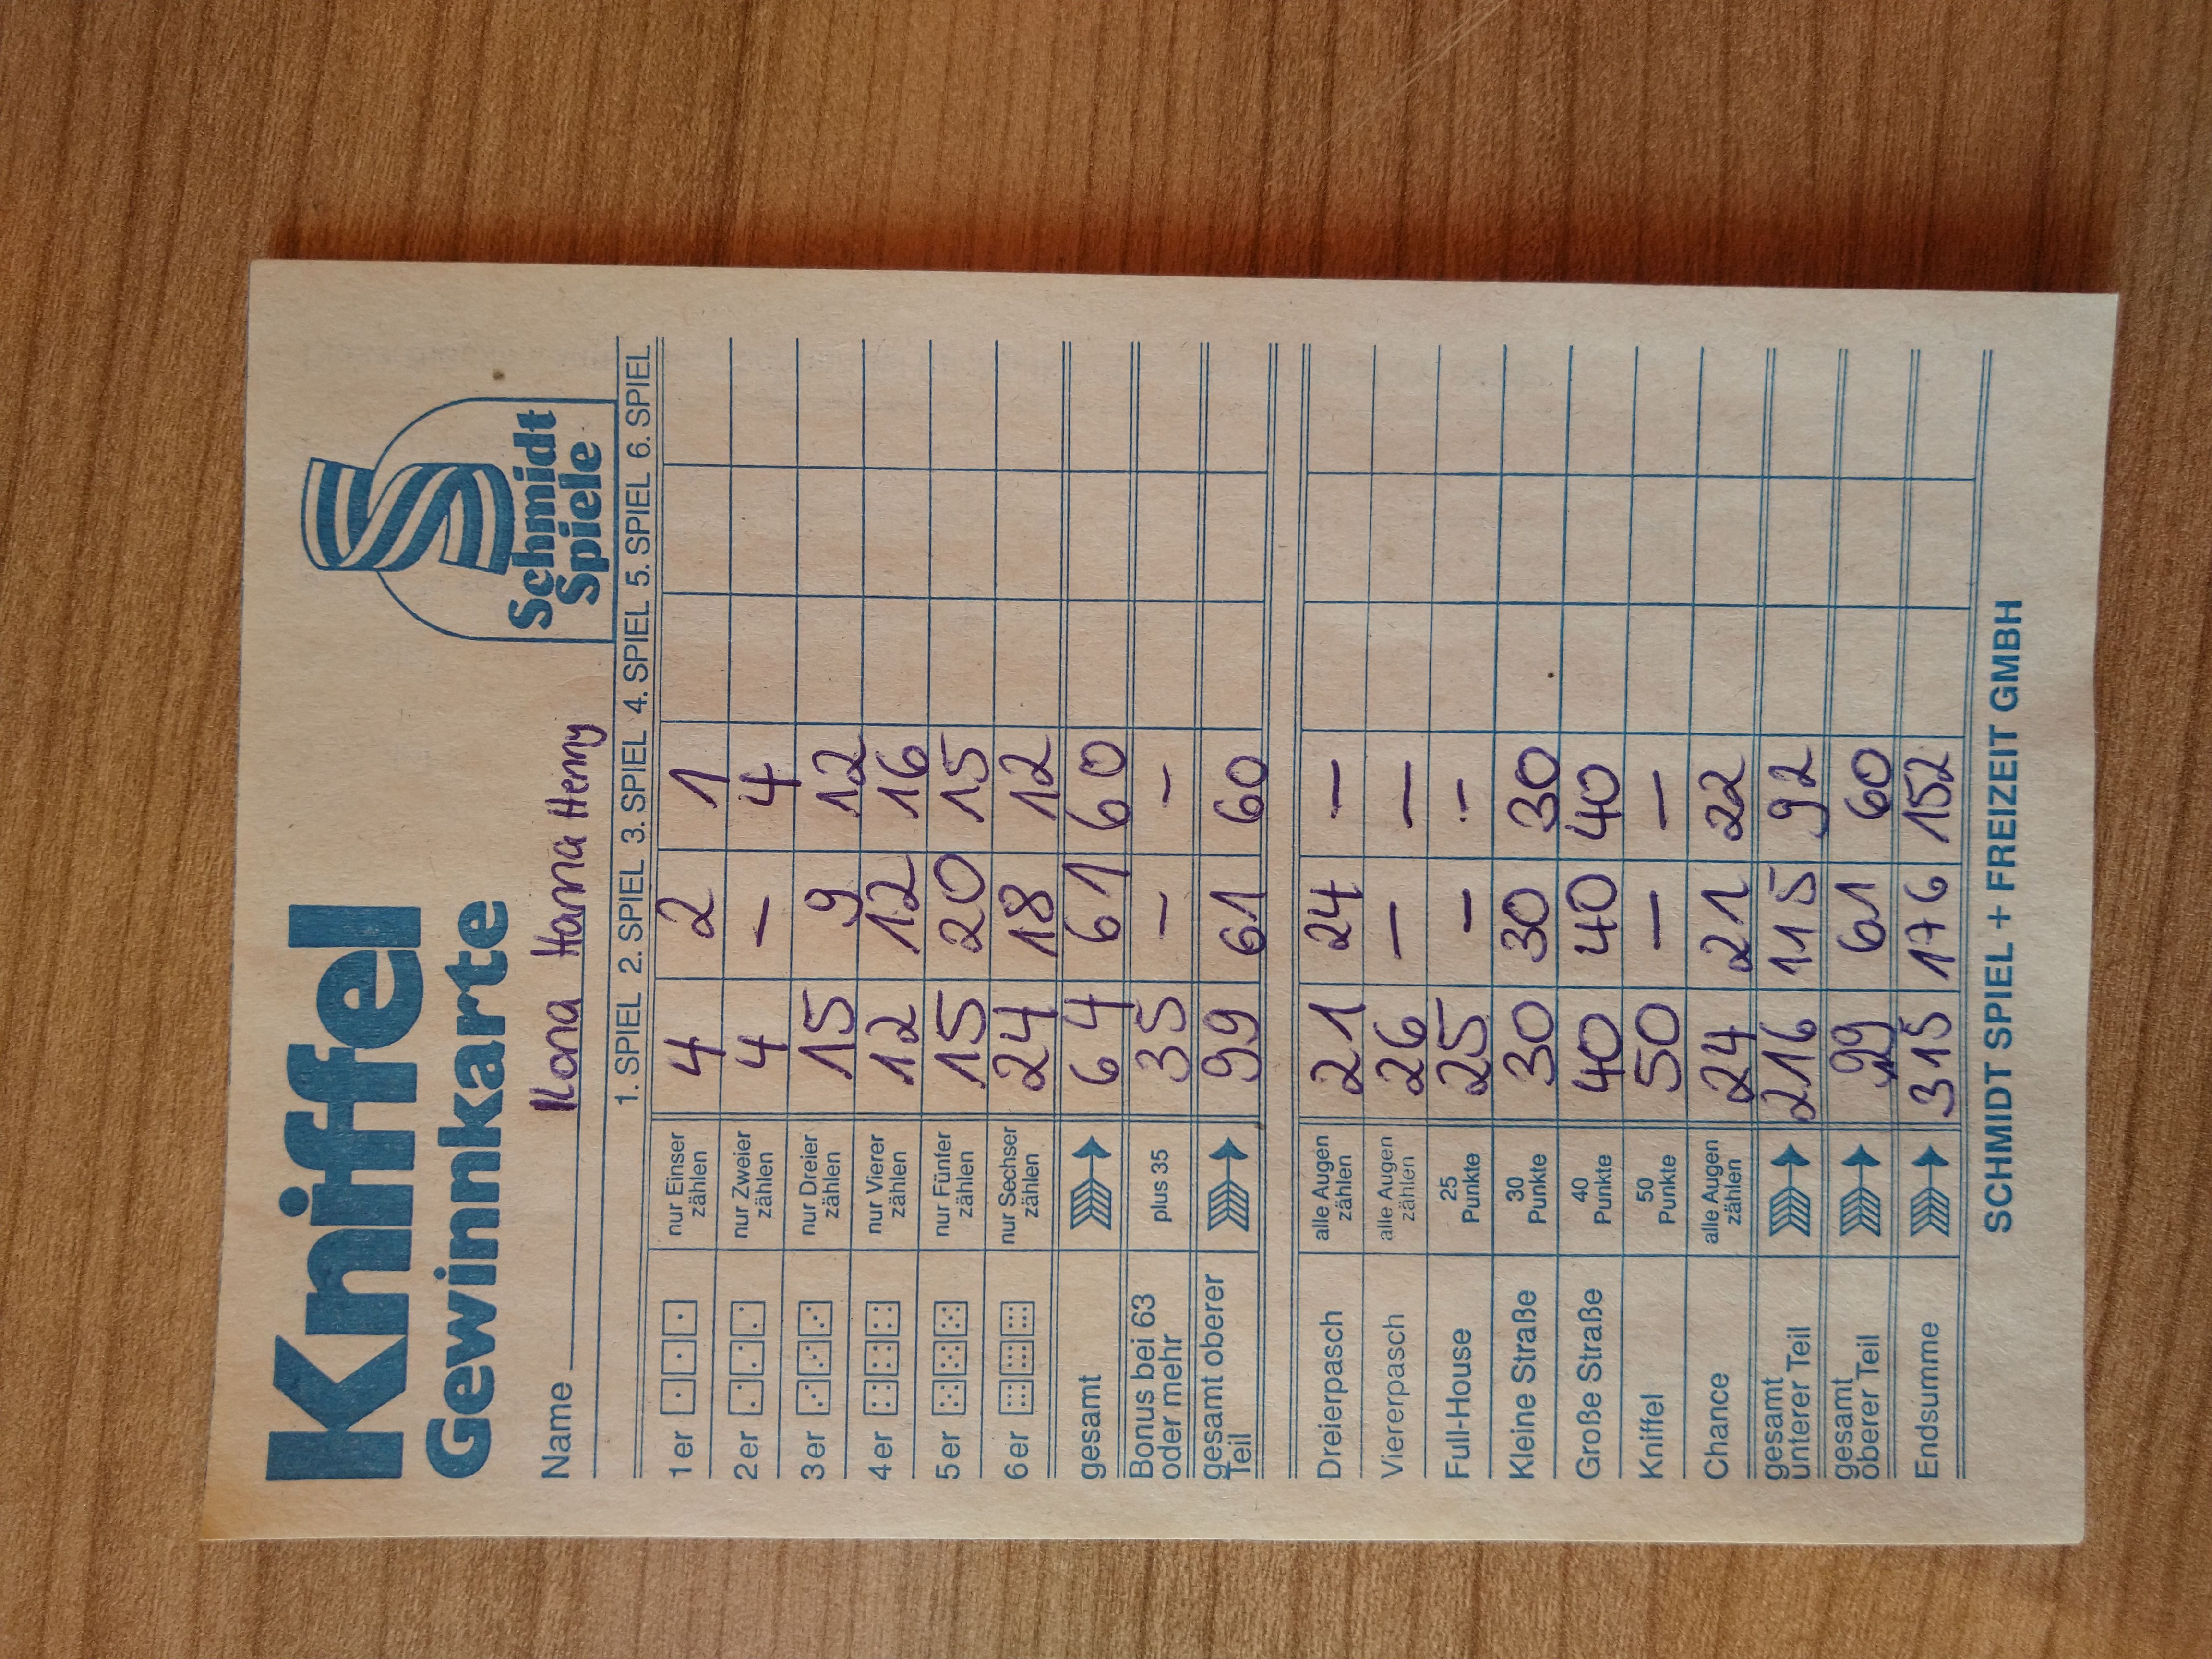 Kniffel
Gewinnkarte
Schmidt
Spiele
Name Ilona Hanna Henny
1. SPIEL 2. SPIEL 3. SPIEL 4. SPIEL 5. SPIEL 6. SPIEL
1er nur Einser zählen 4 2 1
2er nur Zweier zählen 4 – 4
3er nur Dreier zählen 15 9 12
4er nur Vierer zählen 12 12 16
5er nur Fünfer zählen 15 20 15
6er nur Sechser zählen 24 18 12
gesamt 64 61 60
Bonus bei 63 oder mehr plus 35 35 – –
gesamt oberer Teil 99 61 60
Dreierpasch alle Augen zählen 21 24 –
Viererpasch alle Augen zählen 26 – –
Full-House 25 Punkte 25 – –
Kleine Straße 30 Punkte 30 30 30
Große Straße 40 Punkte 40 40 40
Kniffel 50 Punkte 50 – –
Chance alle Augen zählen 24 21 22
gesamt unterer Teil 216 115 92
gesamt oberer Teil 99 61 60
Endsumme 315 176 152
SCHMIDT SPIEL + FREIZEIT GMBH